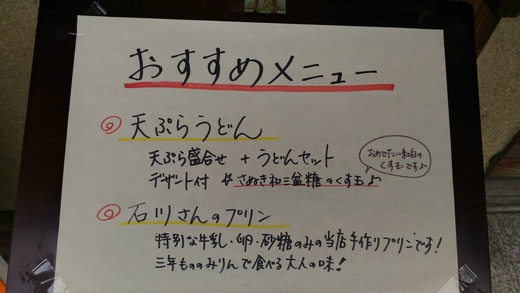 おすすめメニュー
◎ 天ぷらうどん
天ぷら盛合せ + うどんセット
デザート付 ☆ さぬき和三盆糖のくず玉♪
おめでたい紅白のくず玉です♪
◎ 石川さんのプリン
特別な牛乳・卵・砂糖のみの当店手作りプリンです!
三年もののみりんで食べる大人の味!